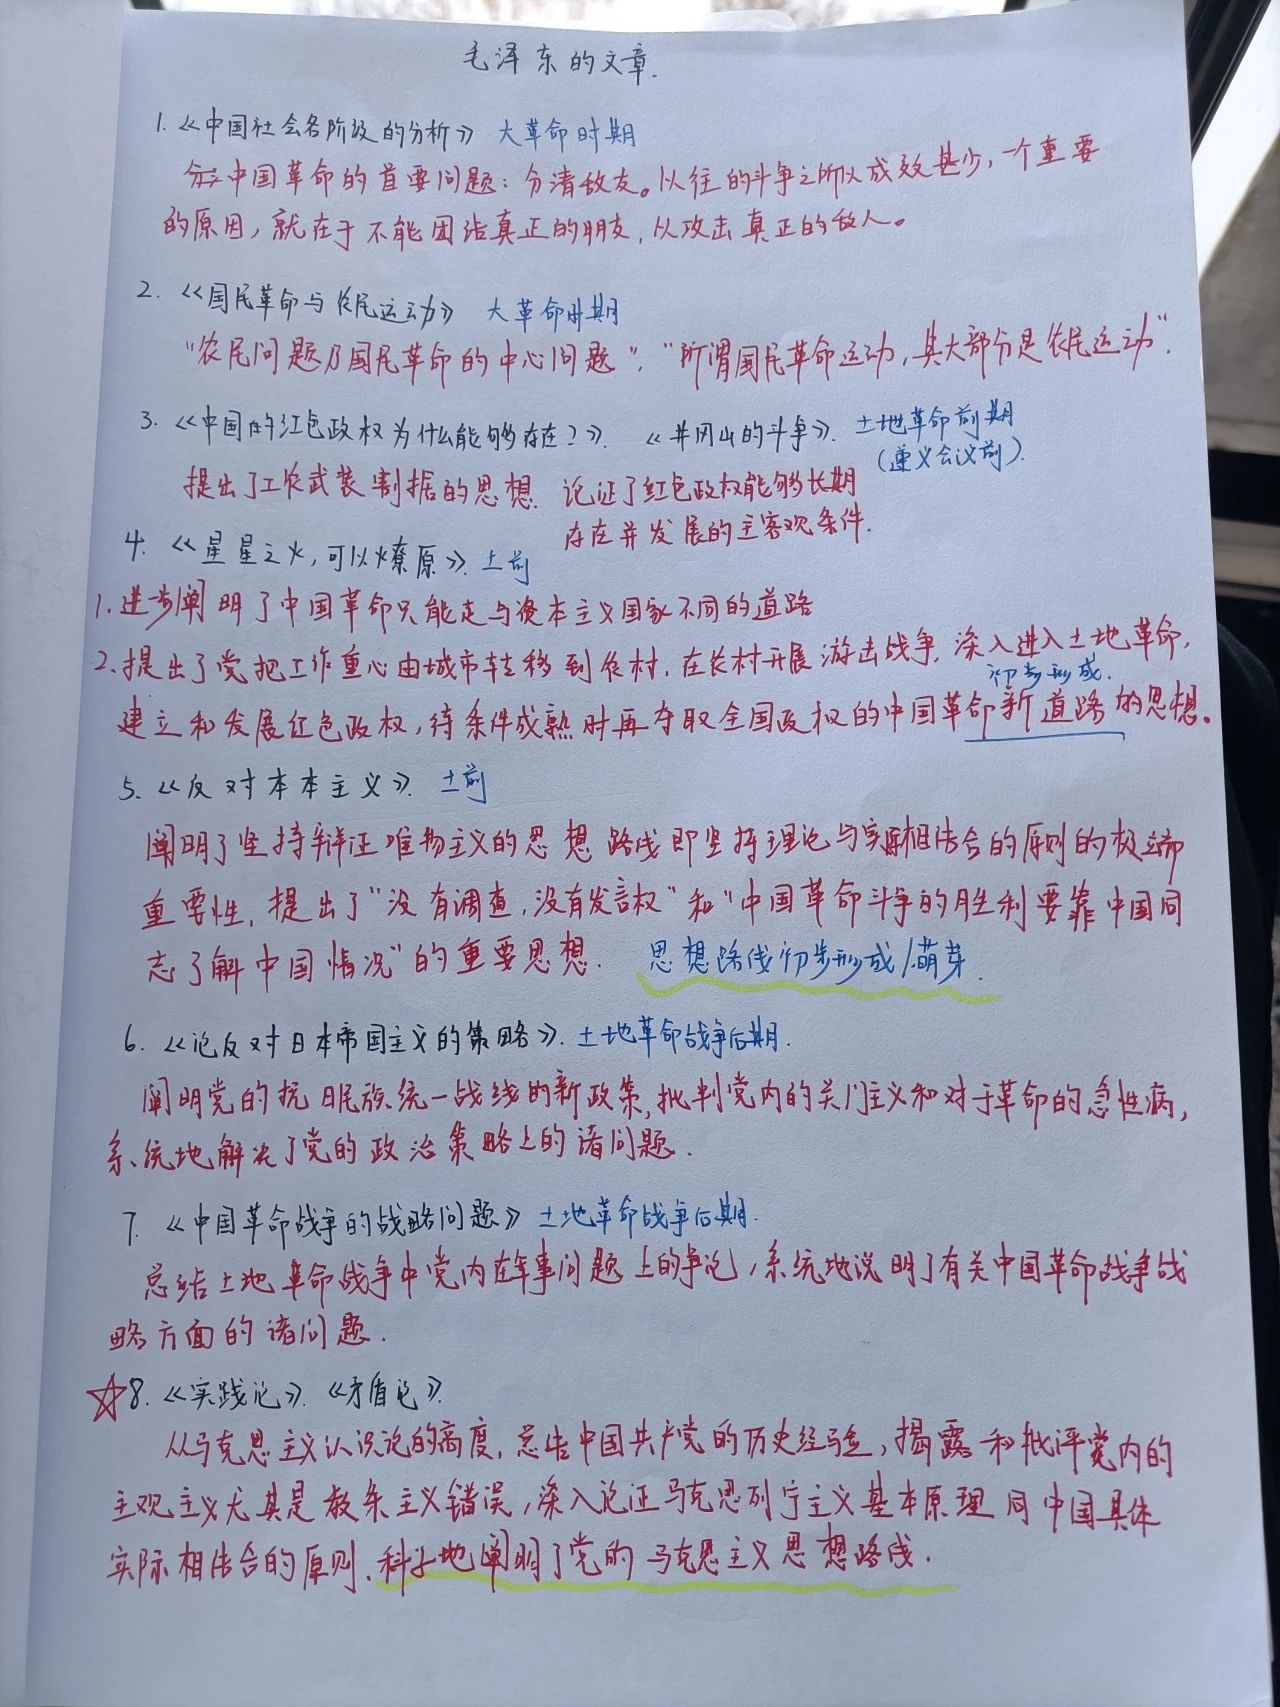 毛泽东的文章.
1.《中国社会各阶级的分析》 大革命时期
中国革命的首要问题：分清敌友。以往的斗争之所以成效甚少，一个重要
的原因，就在于不能团结真正的朋友，以攻击真正的敌人。
2.《国民革命与农民运动》 大革命时期
“农民问题乃国民革命的中心问题”，“所谓国民革命运动，其大部分是农民运动”.
3.《中国的红色政权为什么能够存在？》.《井冈山的斗争》. 土地革命前期
(遵义会议前).
提出了工农武装割据的思想. 论证了红色政权能够长期
存在并发展的主客观条件.
4.《星星之火，可以燎原》. 土前
1.进步阐明了中国革命只能走与资本主义国家不同的道路
2.提出了党把工作重心由城市转移到农村，在农村开展游击战争，深入进入土地革命，
初步形成.
建立和发展红色政权，待条件成熟时再夺取全国政权的中国革命新道路的思想。
5.《反对本本主义》. 土前
阐明了坚持辩证唯物主义的思想路线即坚持理论与实际相结合的原则的极端
重要性，提出了“没有调查，没有发言权”和“中国革命斗争的胜利要靠中国同
志了解中国情况”的重要思想. 思想路线初步形成/萌芽.
6.《论反对日本帝国主义的策略》. 土地革命战争后期.
阐明党的抗日民族统一战线的新政策，批判党内的关门主义和对于革命的急性病，
系统地解决了党的政治策略上的诸问题.
7.《中国革命战争的战略问题》 土地革命战争后期.
总结土地革命战争中党内在军事问题上的争论，系统地说明了有关中国革命战争战
略方面的诸问题.
☆8.《实践论》.《矛盾论》.
从马克思主义认识论的高度，总结中国共产党的历史经验，揭露和批评党内的
主观主义尤其是教条主义错误，深入论证马克思列宁主义基本原理同中国具体
实际相结合的原则，科学地阐明了党的马克思主义思想路线.